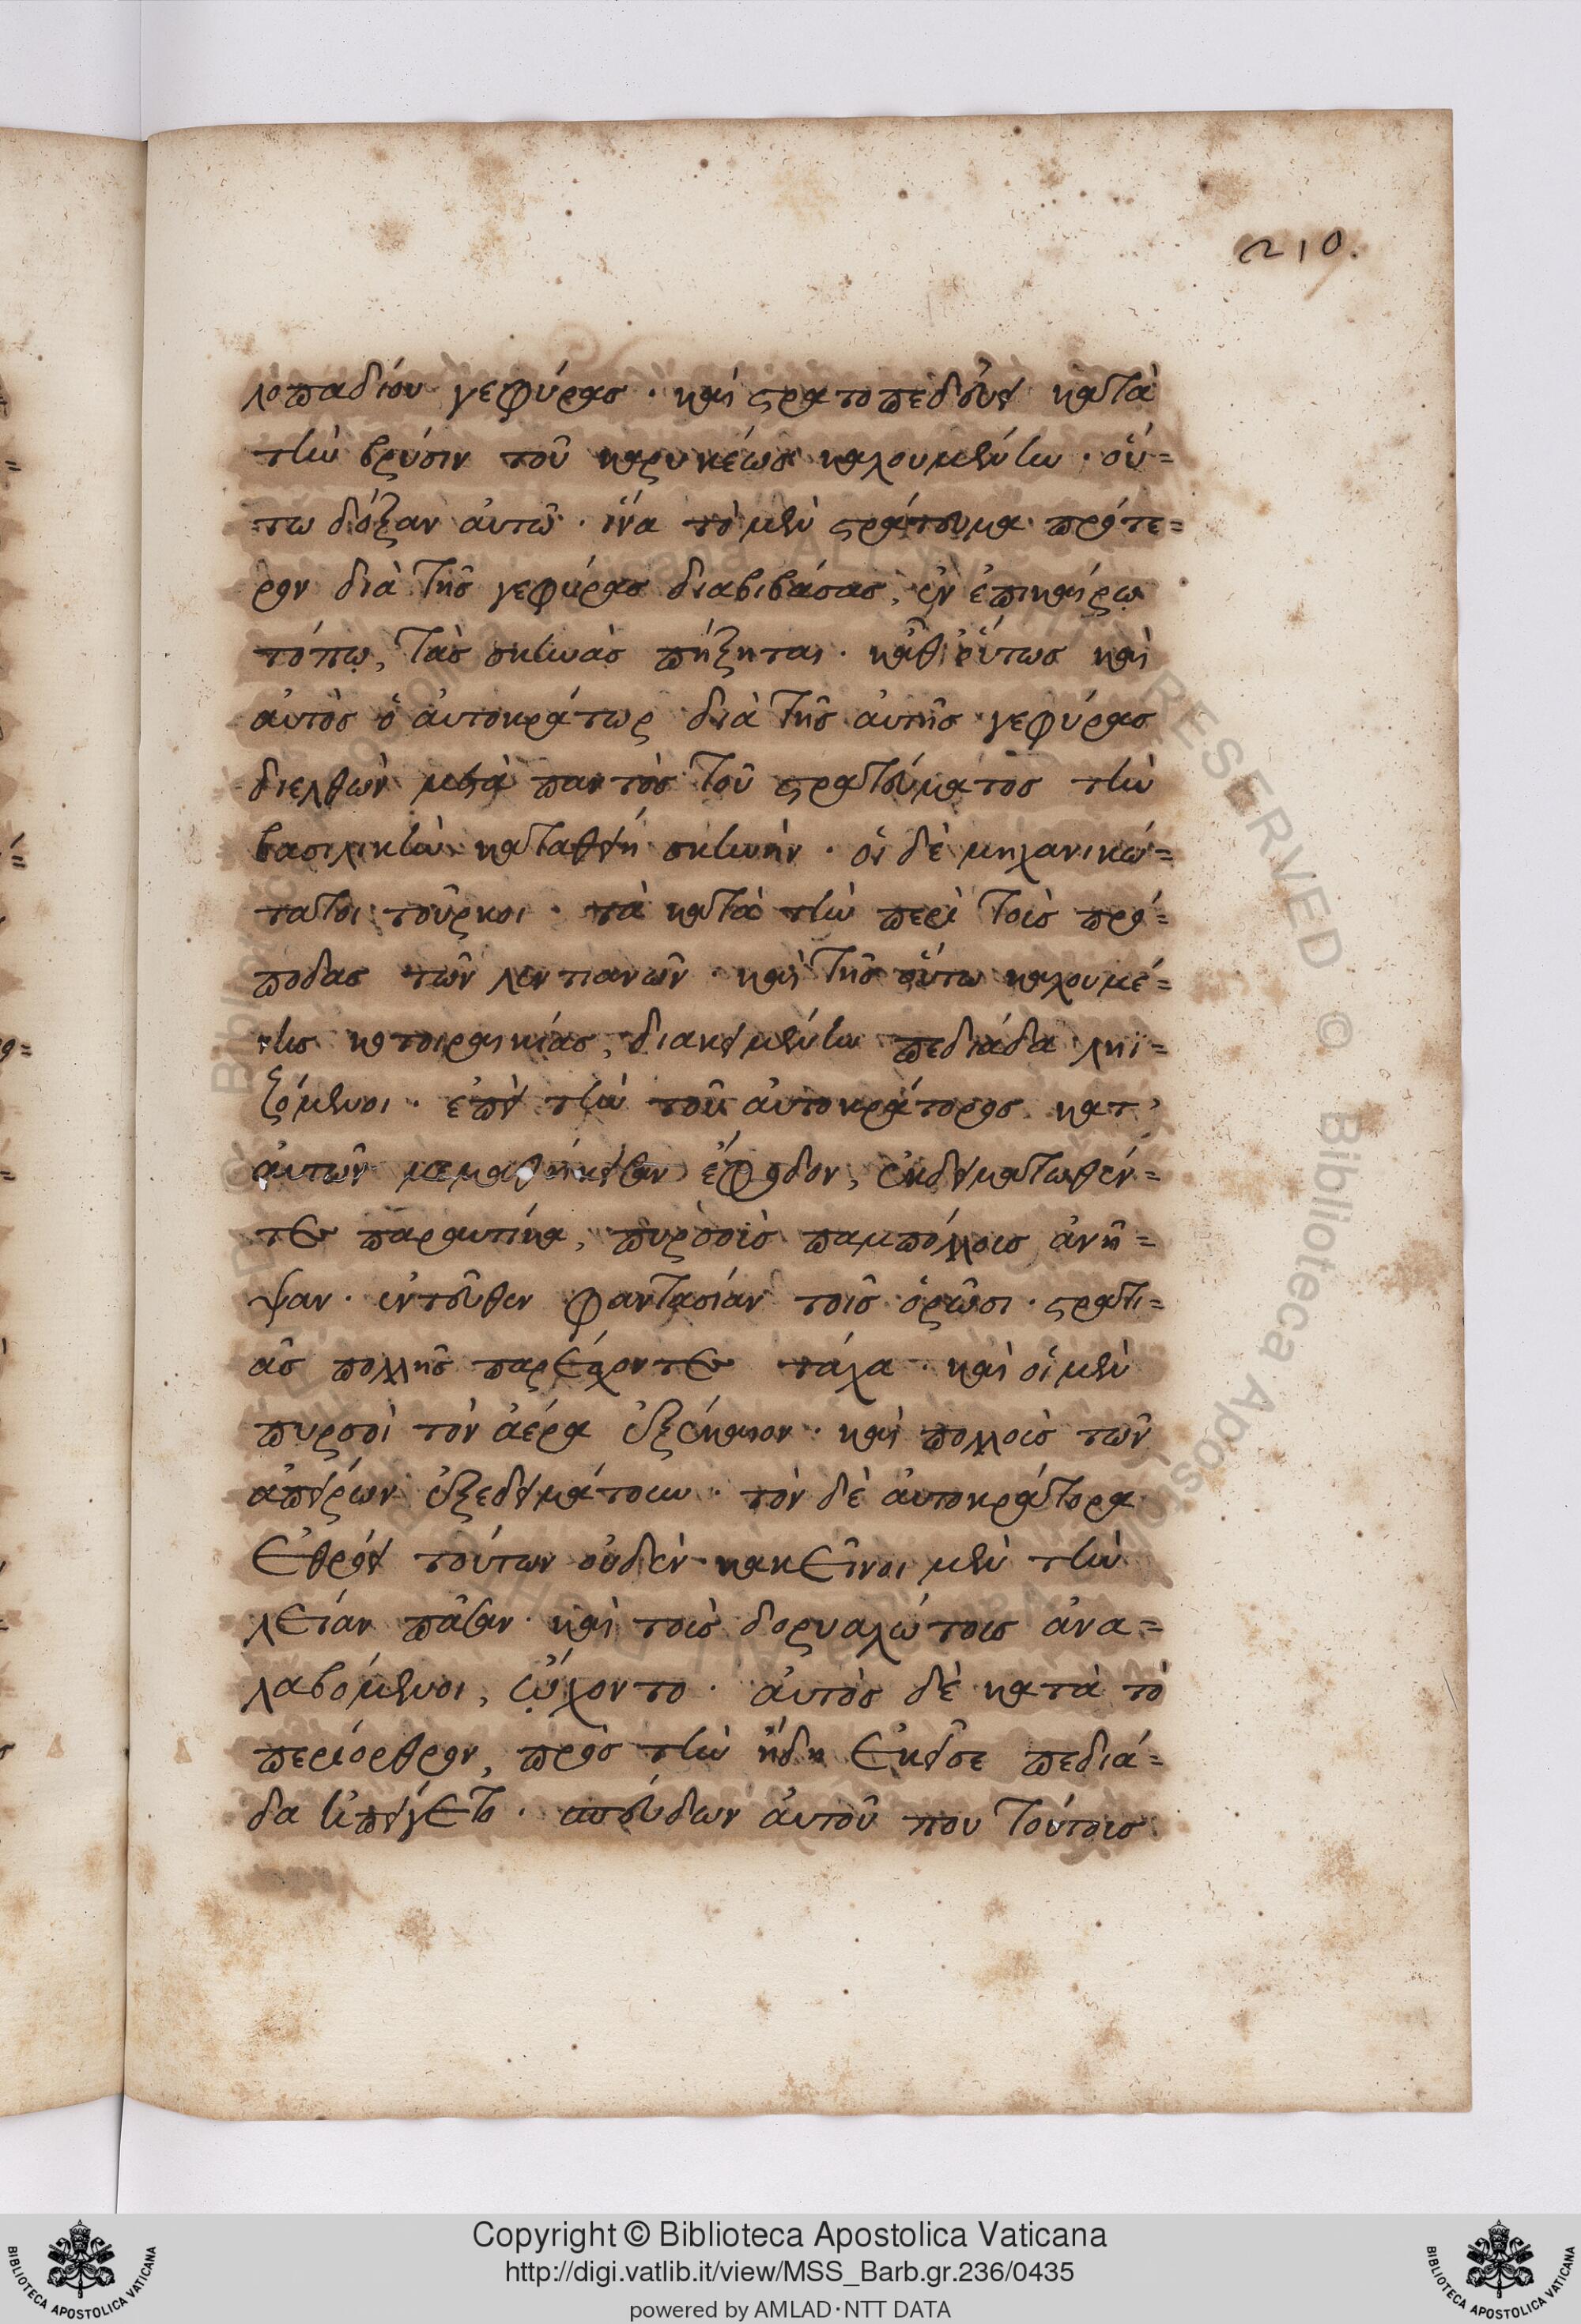 210.
λοπαδίου γεφύρας · καὶ στρατοπεδεύει κατὰ
τὴν βρύσιν τοῦ καρυκέως καλουμένην · οὕ=
τω δόξαν αὐτῶ · ἵνα τὸ μὲν στράτευμα πρότε=
ρον διὰ τῆς γεφύρας διαβιβάσας, ἐν ἐπικαίρῳ
τόπῳ, τὰς σκηνὰς πήξηται · καθ' οὕτως καὶ
αὐτὸς ὁ αὐτοκράτωρ διὰ τῆς αὐτῆς γεφύρας
διελθὼν μετὰ παντὸς τοῦ στρατεύματος τὴν
βασιλικὴν καταθείη σκηνήν · οἱ δὲ μηχανικώ=
τατοι τοῦρκοι · τὰ κατὰ τὴν περὶ τοὺς πρό=
ποδας τῶν λεντιανῶν · καὶ τῆς οὕτω καλουμέ=
νης κοτοιραικίας, διακειμένην πεδιάδα ληι=
ζόμενοι · ἐπεὶ τὴν τοῦ αὐτοκράτορος κατ'
αὐτῶν μεμαθήκεισαν ἔφοδον, ἐκδειματωθέν=
τες παραυτίκα, πυρσοὺς παμπόλλους ἀνῆ=
ψαν · ἐντεῦθεν φαντασίαν τοῖς ὁρῶσι · στρατι=
ᾶς πολλῆς παρέχοντες τάχα · καὶ οἱ μὲν
πυρσοὶ τὸν ἀέρα ἐξέκαιον · καὶ πολλοὺς τῶν
ἀπείρων ἐξεδειμάτουν · τὸν δὲ αὐτοκράτορα
ἔθρόει τούτων οὐδέν · κακεῖνοι μὲν τὴν
λείαν πᾶσαν · καὶ τοὺς δορυαλώτους ἀνα=
λαβόμενοι, ᾤχοντο · αὐτὸς δὲ κατὰ τὸ
περίορθρον, πρὸς τὴν ἤδη ἐκεῖσε πεδιά=
δα ἠπείγετο · σπεύδων αὐτοῦ που τούτοις
Copyright © Biblioteca Apostolica Vaticana
http://digi.vatlib.it/view/MSS_Barb.gr.236/0435
powered by AMLAD·NTT DATA